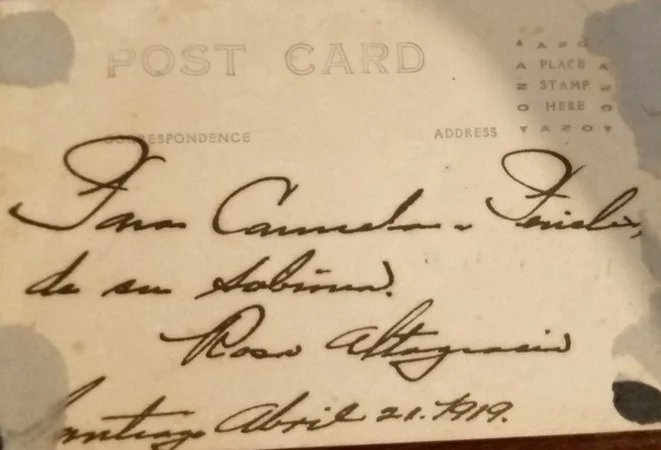 POST CARD
AZO
PLACE
STAMP
HERE
AZO
CORRESPONDENCE
ADDRESS
Para Carmela
de su Sobrina.
Rosa Altagracia
Santiago Abril 21. 1919.